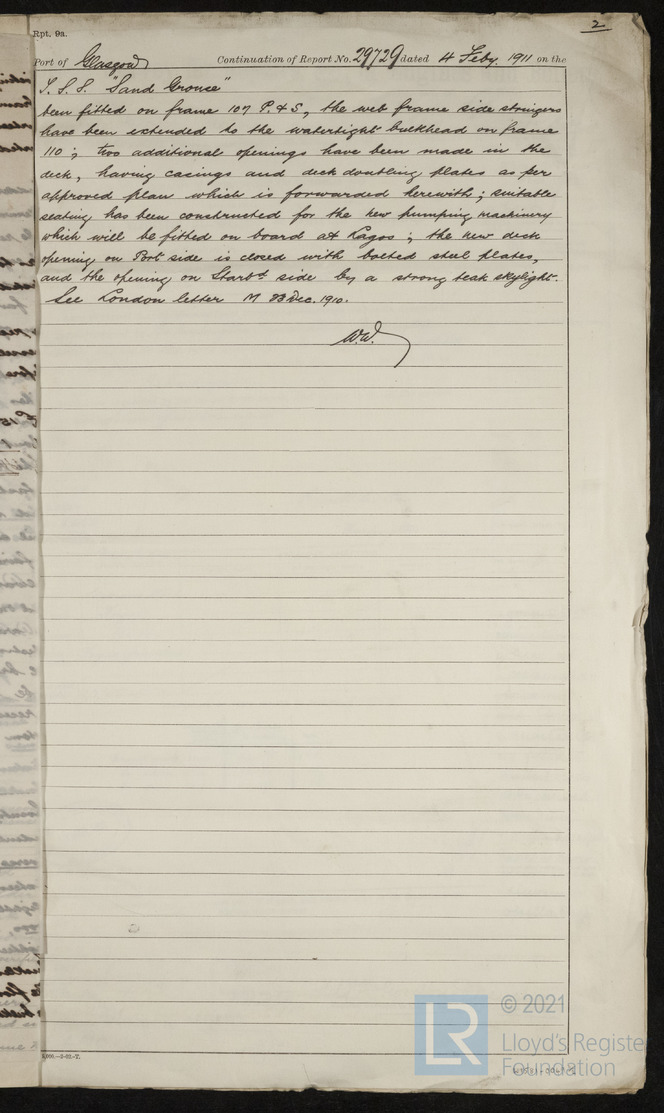 2
Rpt. 9a.
Port of Glasgow Continuation of Report No. 29729 dated 4 Feby. 1911 on the
T. S. S. "Sand Grouse"
been fitted on frame 107 P. & S., the web frame side stringers
have been extended to the watertight bulkhead on frame
110; two additional openings have been made in the
deck, having casings and deck doubling plates as per
approved plan which is forwarded herewith; suitable
seating has been constructed for the new pumping machinery
which will be fitted on board at Lagos; the new deck
opening on Port side is closed with bolted steel plates,
and the opening on Starbd side by a strong teak skylight.
See London letter M Dec. 1910.
W.W.
© 2021
LR
Lloyd's Registe
Foundation